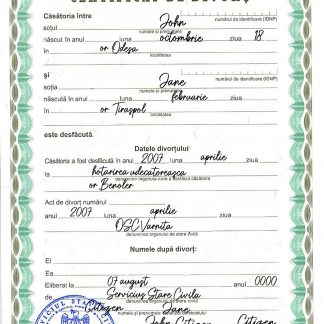 CERTIFICAT DE DIVORȚ
Căsătoria între
soțul John
numărul de identificare (IDNP)
numele și prenumele
născut în anul luna octombrie ziua 18
în or Odesa
localitatea
și
numărul de identificare (IDNP)
soția Jane
numele și prenumele
născută în anul luna februarie ziua
în or Tiraspol
localitatea
este desfăcută.
Datele divorțului
Căsătoria a fost desfăcută în anul 2007 aprilie ziua
la hotarirea udecatoreasca
denumirea organului care a desfăcut căsătoria
or
Act de divorț numărul
anul 2007 luna aprilie ziua
OSC Varnita
denumirea organului de stare civilă
Numele după divorț:
El
Ea
Eliberat la 07 august anul 0000
Serviciul Stare Civila
denumirea organului de stare civilă
Citizen Jane
John Citizen Citizen